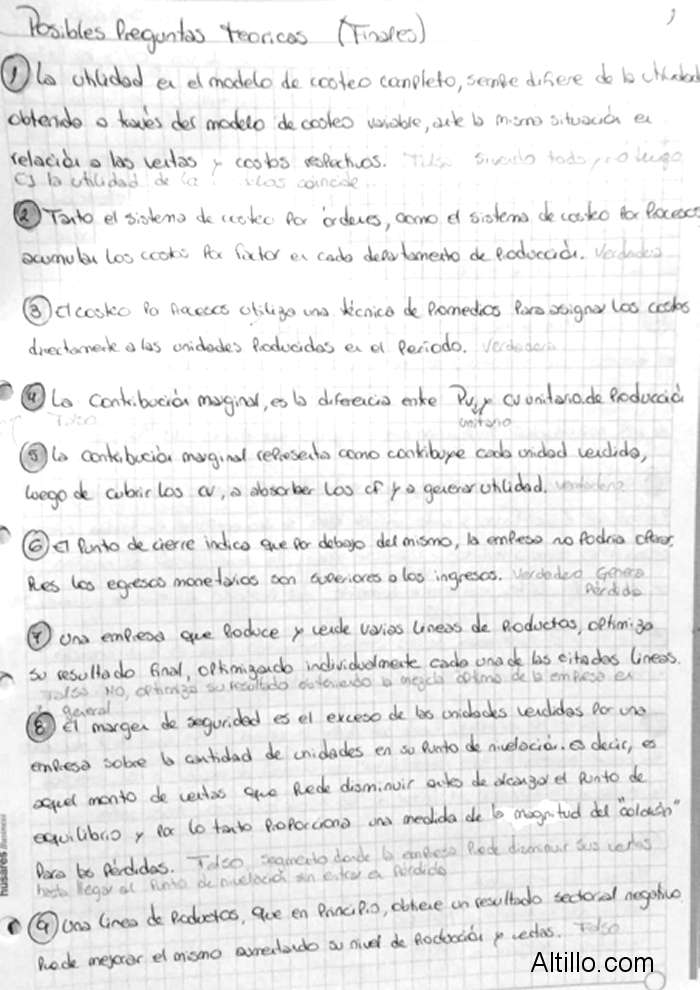 Posibles Preguntas teoricas (Finales)
1
① La utilidad en el modelo de costeo completo, siempre difiere de la utilidad
obtenida a través del modelo de costeo variable, ante la misma situación en
relación a las ventas y costos respectivos. Falso
es la utilidad de la coincide
② Tanto el sistema de costeo por órdenes, como el sistema de costeo por Procesos
acumulan los costos por factor en cada departamento de Producción. Verdadero
③ El costeo por Procesos utiliza una técnica de Promedios para asignar los costos
directamente a las unidades Producidas en el Periodo. Verdadera
④ La Contribución marginal, es la diferencia entre Pu y cv unitario de Producción
Falso unitario
⑤ La contribución marginal representa como contribuye cada unidad vendida,
luego de cubrir los cv, a absorber los cf y a generar utilidad. Verdadera
⑥ El Punto de cierre indica que por debajo del mismo, la empresa no Podria operar,
Pues los egresos monetarios son superiores a los ingresos. Verdadero Genera
Pérdida
⑦ Una empresa que Produce y vende varias lineas de Productos, optimiza
su resultado final, optimizando individualmente cada una de las citadas lineas.
Falso NO, optimiza su resultado obteniendo la mezcla optima de la empresa en
general
⑧ El margen de seguridad es el exceso de las unidades vendidas por una
empresa sobre la cantidad de unidades en su Punto de nivelación. es decir, es
aquel monto de ventas que Puede disminuir antes de alcanzar el Punto de
equilibrio y por lo tanto Proporciona una medida de la magnitud del "colchón"
Para las Pérdidas. Falso segmento donde la empresa Puede disminuir sus ventas
hasta llegar al Punto de nivelación sin entrar en Pérdida
⑨ Una linea de Productos, que en Principio, obtiene un resultado sectorial negativo
Puede mejorar el mismo aumentando su nivel de Producción y ventas. Falso
húsares
Altillo.com